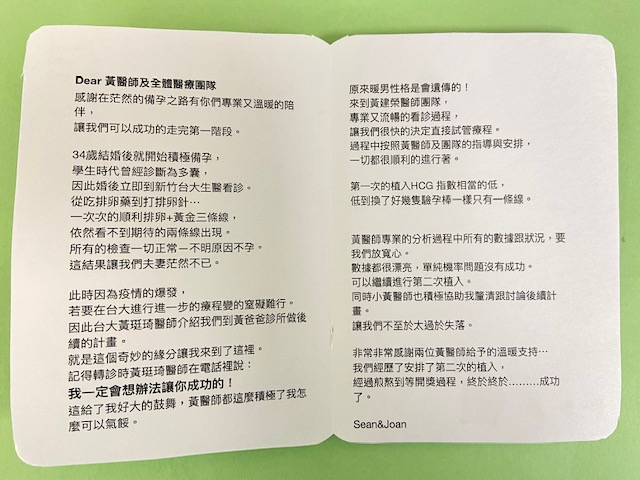 Dear 黃醫師及全體醫療團隊
感謝在茫然的備孕之路有你們專業又溫暖的陪
伴，
讓我們可以成功的走完第一階段。
34歲結婚後就開始積極備孕，
學生時代曾經診斷為多囊，
因此婚後立即到新竹台大生醫看診。
從吃排卵藥到打排卵針…
一次次的順利排卵+黃金三條線，
依然看不到期待的兩條線出現。
所有的檢查一切正常－不明原因不孕。
這結果讓我們夫妻茫然不已。
此時因為疫情的爆發，
若要在台大進行進一步的療程變的窒礙難行。
因此台大黃珽琦醫師介紹我們到黃爸爸診所做後
續的計畫。
就是這個奇妙的緣分讓我來到了這裡。
記得轉診時黃珽琦醫師在電話裡說：
我一定會想辦法讓你成功的！
這給了我好大的鼓舞，黃醫師都這麼積極了我怎
麼可以氣餒。
原來暖男性格是會遺傳的！
來到黃建榮醫師團隊，
專業又流轉的看診過程，
讓我們很快的決定直接試管療程。
過程中按照黃醫師及團隊的指導與安排，
一切都很順利的進行著。
第一次的植入HCG 指數相當的低，
低到換了好幾隻驗孕棒一樣只有一條線。
黃醫師專業的分析過程中所有的數據跟狀況，要
我們放寬心。
數據都很漂亮，單純機率問題沒有成功。
可以繼續進行第二次植入。
同時小黃醫師也積極協助我釐清跟討論後續計
畫。
讓我們不至於太過於失落。
非常非常感謝兩位黃醫師給予的溫暖支持…
我們經歷了安排了第二次的植入，
經過煎熬到等開獎過程，終於終於………成功
了。
Sean&Joan